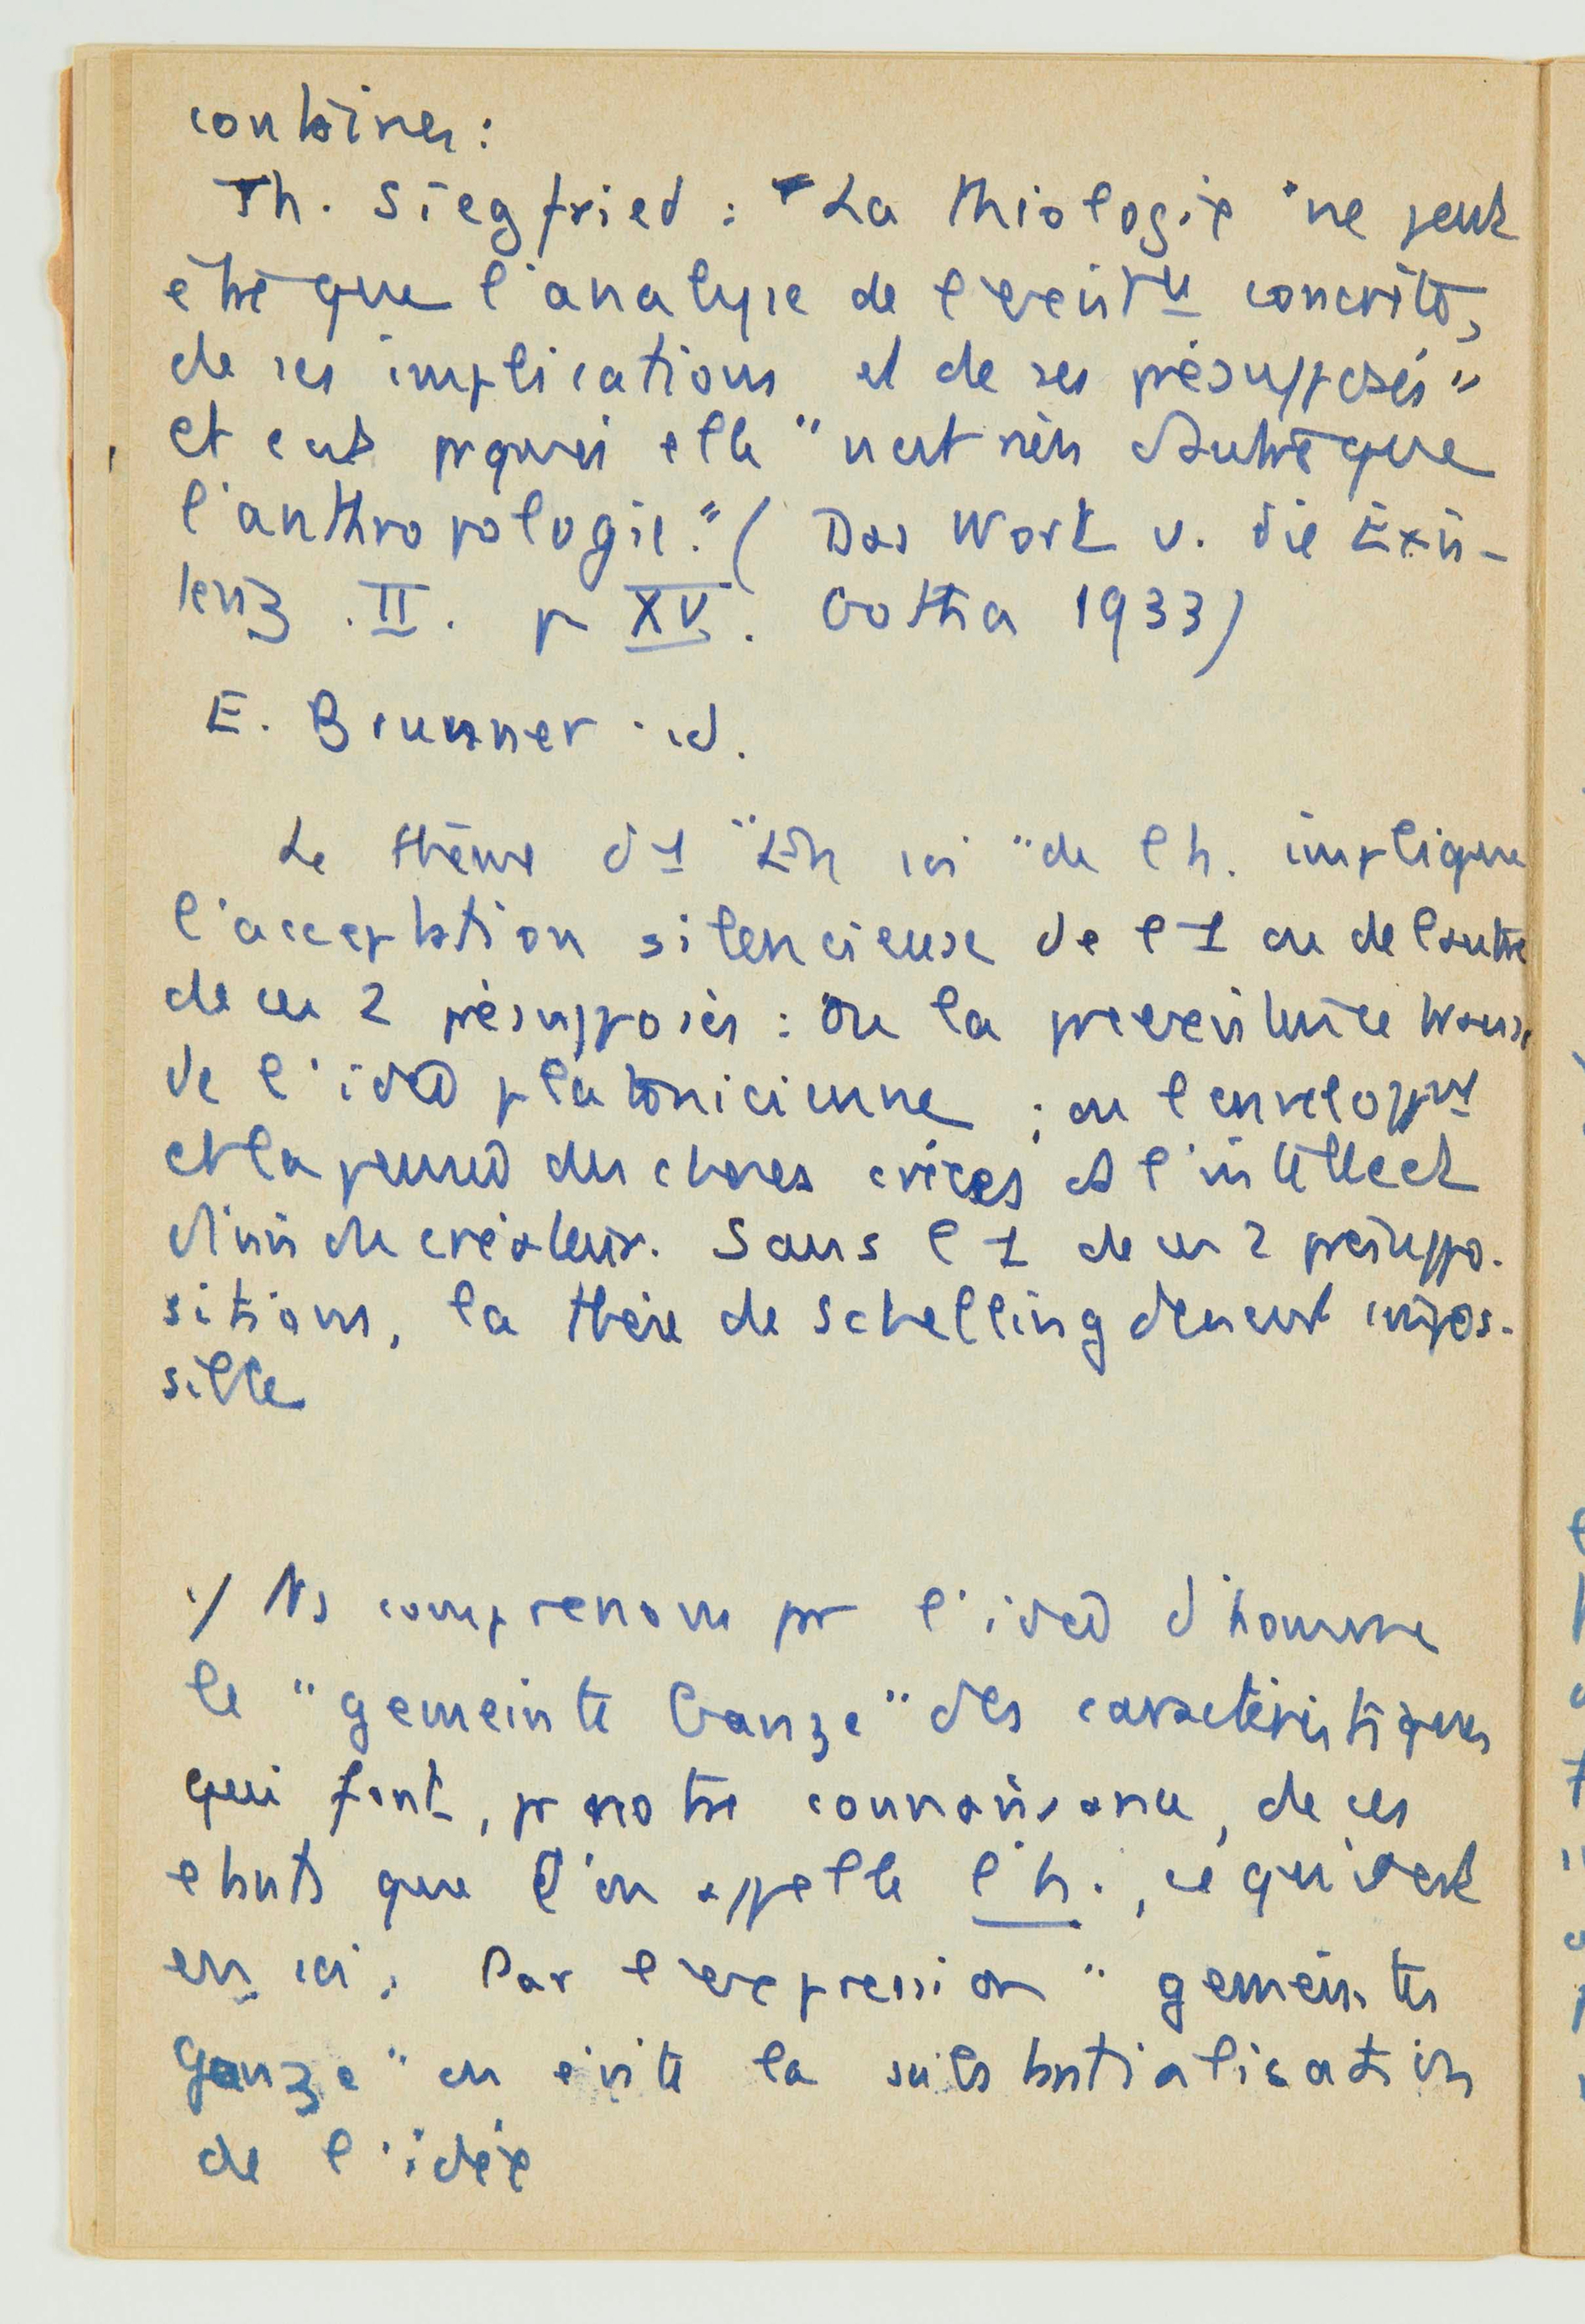 contraires:
Th. Siegfried : "La théologie "ne peut
être que l'analyse de l'exist<sup>ce</sup> concrète,
de ses implications et de ses présupposés"
et c'est pquoi elle "n'est rien d'autre que
l'anthropologie." ( Das Wort u. die Exis-
tenz . II . p XV . Gotha 1933)
E. Brunner . id.
Le thème d'1 "En soi" de l'h. implique
l'acceptation silencieuse de l'1 ou de l'autre
de ces 2 présupposés : ou la préexistence
de l'idée platonicienne ; ou
et la pensée des choses créées ds l'intellect
divin du créateur. Sans l'1 de ces 2 présuppo-
sitions, la thèse de Schelling devient impos-
sible
1/ Ns comprenons pr l'idée d'homme
le "gemeinte Ganze" des caractéristiques
qui font, pr notre connaissance, de ces
etants que l'on appelle l'h.,
en soi. Par l'expression "gemeintes
Ganze" on évite la substantialisation
de l'idée